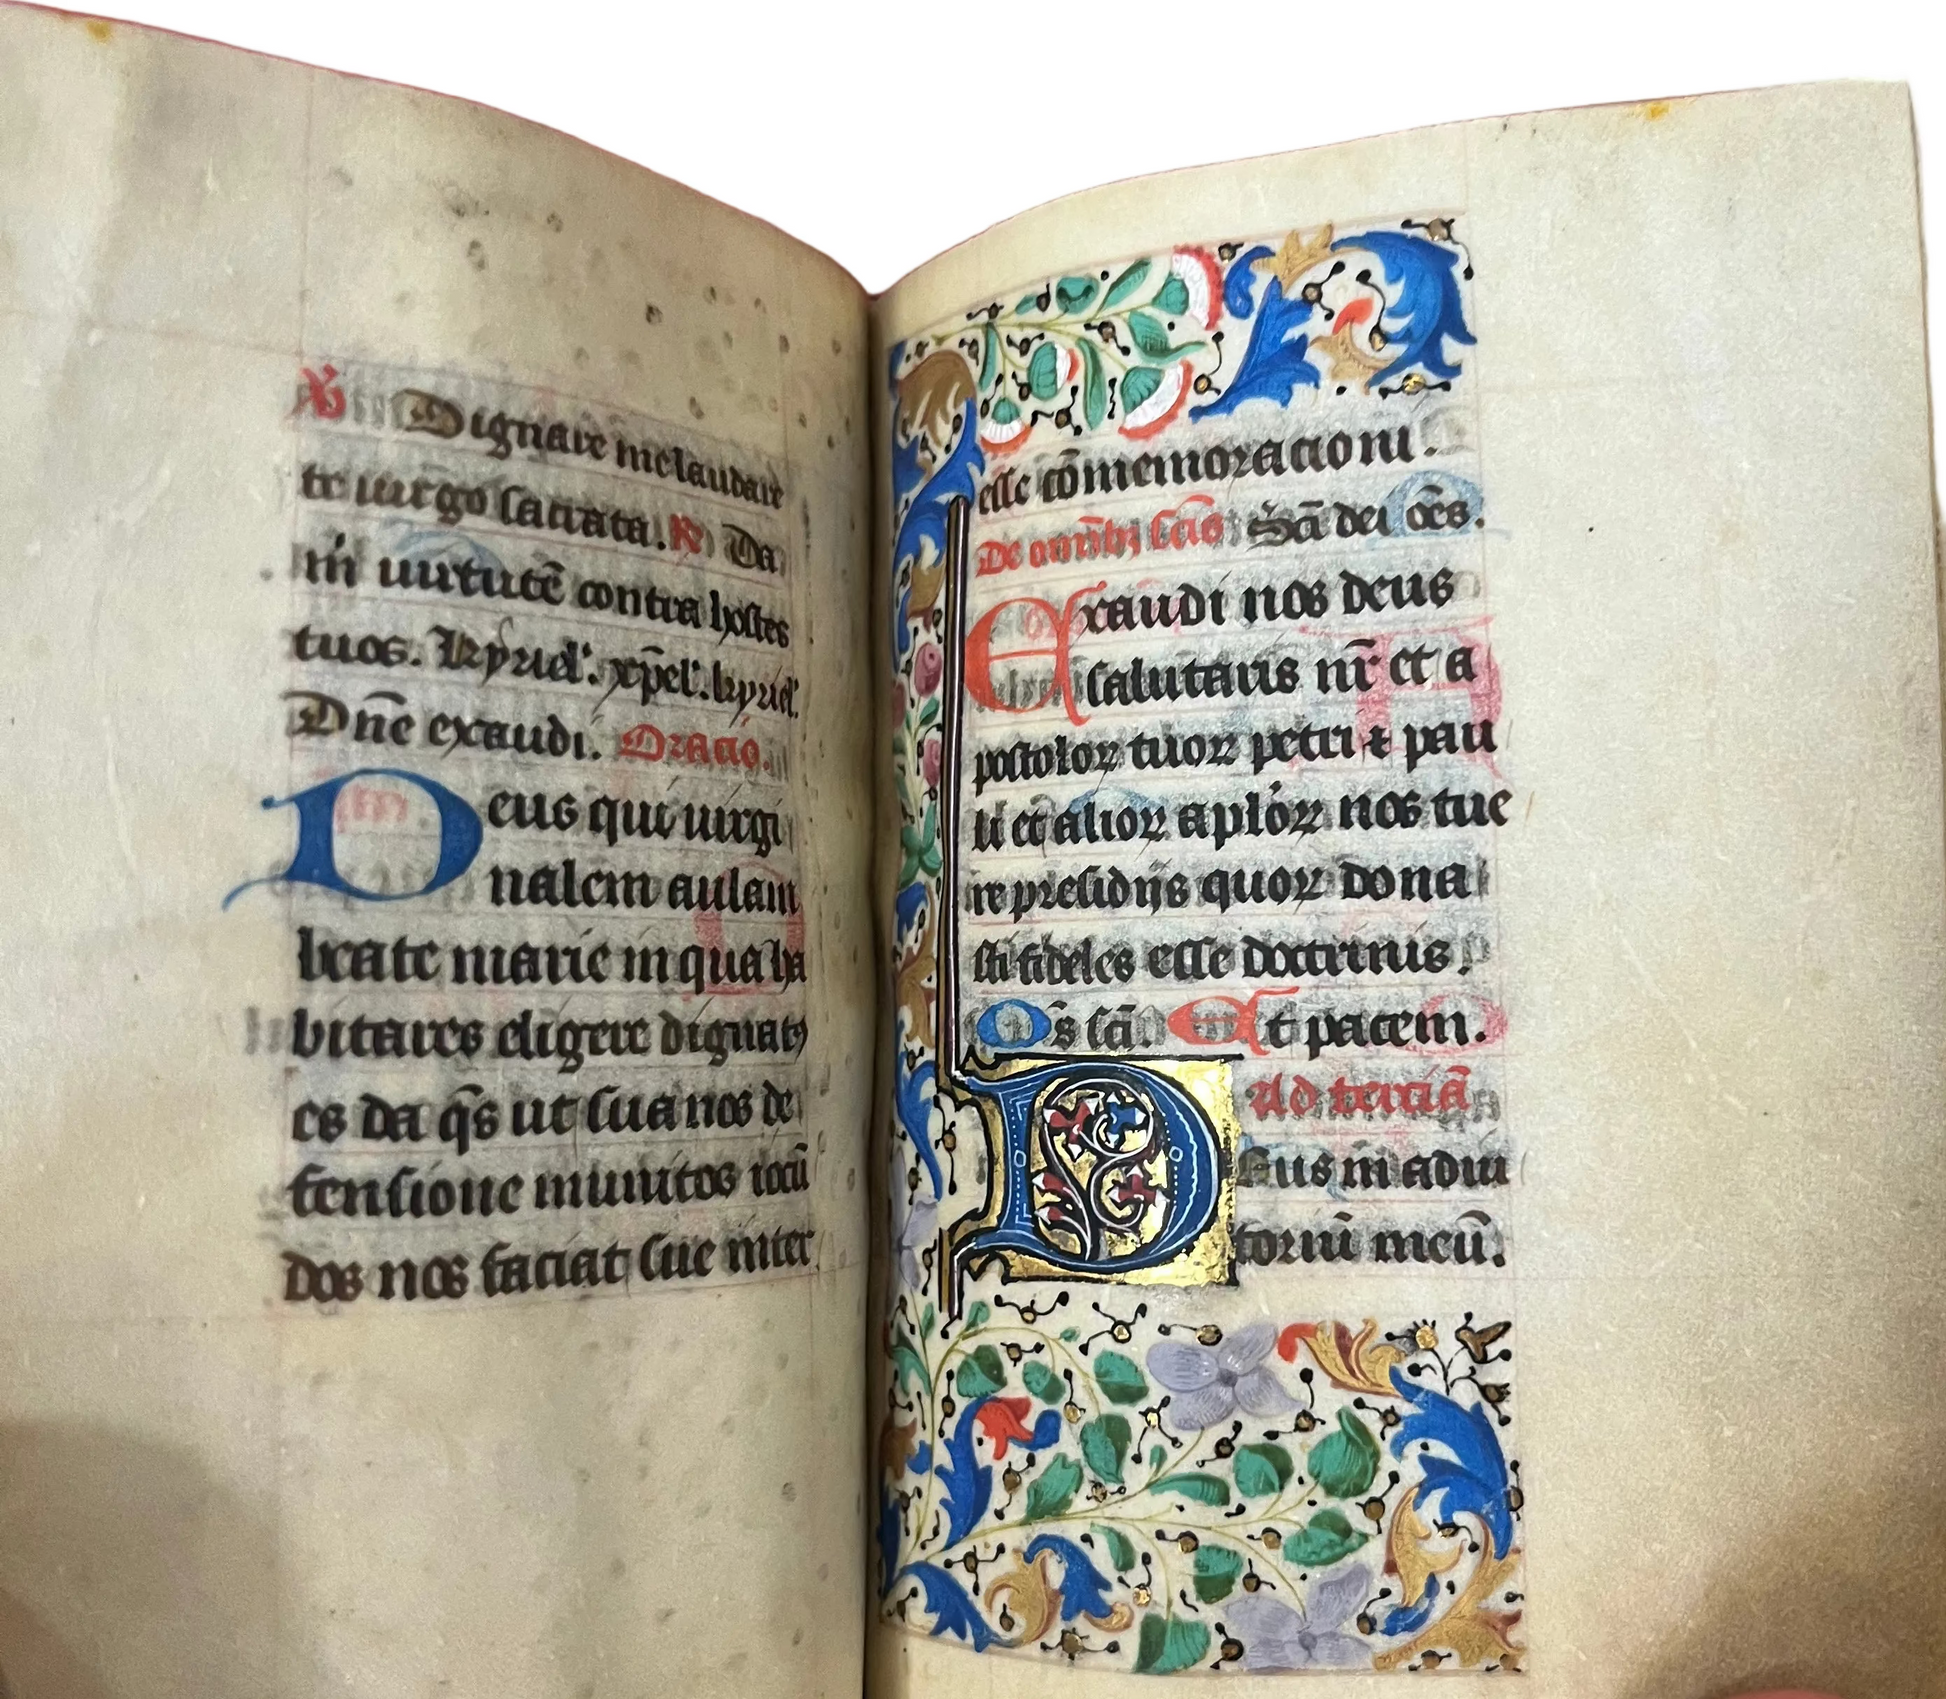 ℣ Dignare me laudare
te uirgo sacrata. ℟ Da
m̄ uirtutē contra hostes
tuos. Kyriel'. xp̄el'. kyriel'.
Dn̄e exaudi. Oracio.
Deus qui uirgi
nalem aulam
beate marie in qua ha
bitares eligere dignatꝰ
es da q̄s ut sua nos de
fensione munitos iocū
dos nos faciat sue inter
esse cōmemoracioni.
De omībꝫ scīs Sc̄i dei oēs.
Exaudi nos deus
salutaris nr̄ et a
postoloꝝ tuoꝝ petri ⁊ pau
li et alioꝝ aploꝝ nos tue
re presidijs quoꝝ dona
sti fideles esse doctrinis.
Os̄ sc̄i. Et pacem.
Ad terciā
Deus in adiu
toriū meū.